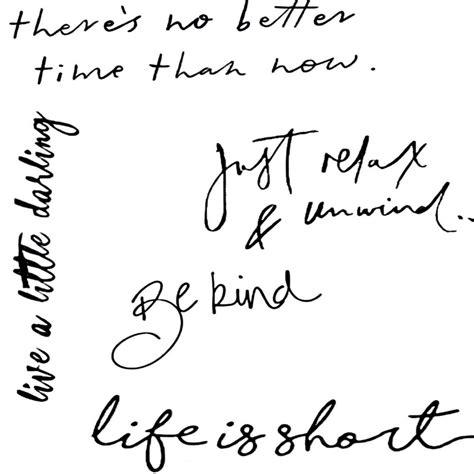 there's no better
time than now.
live a little darling
Just relax
& unwind..
Be kind
life is short